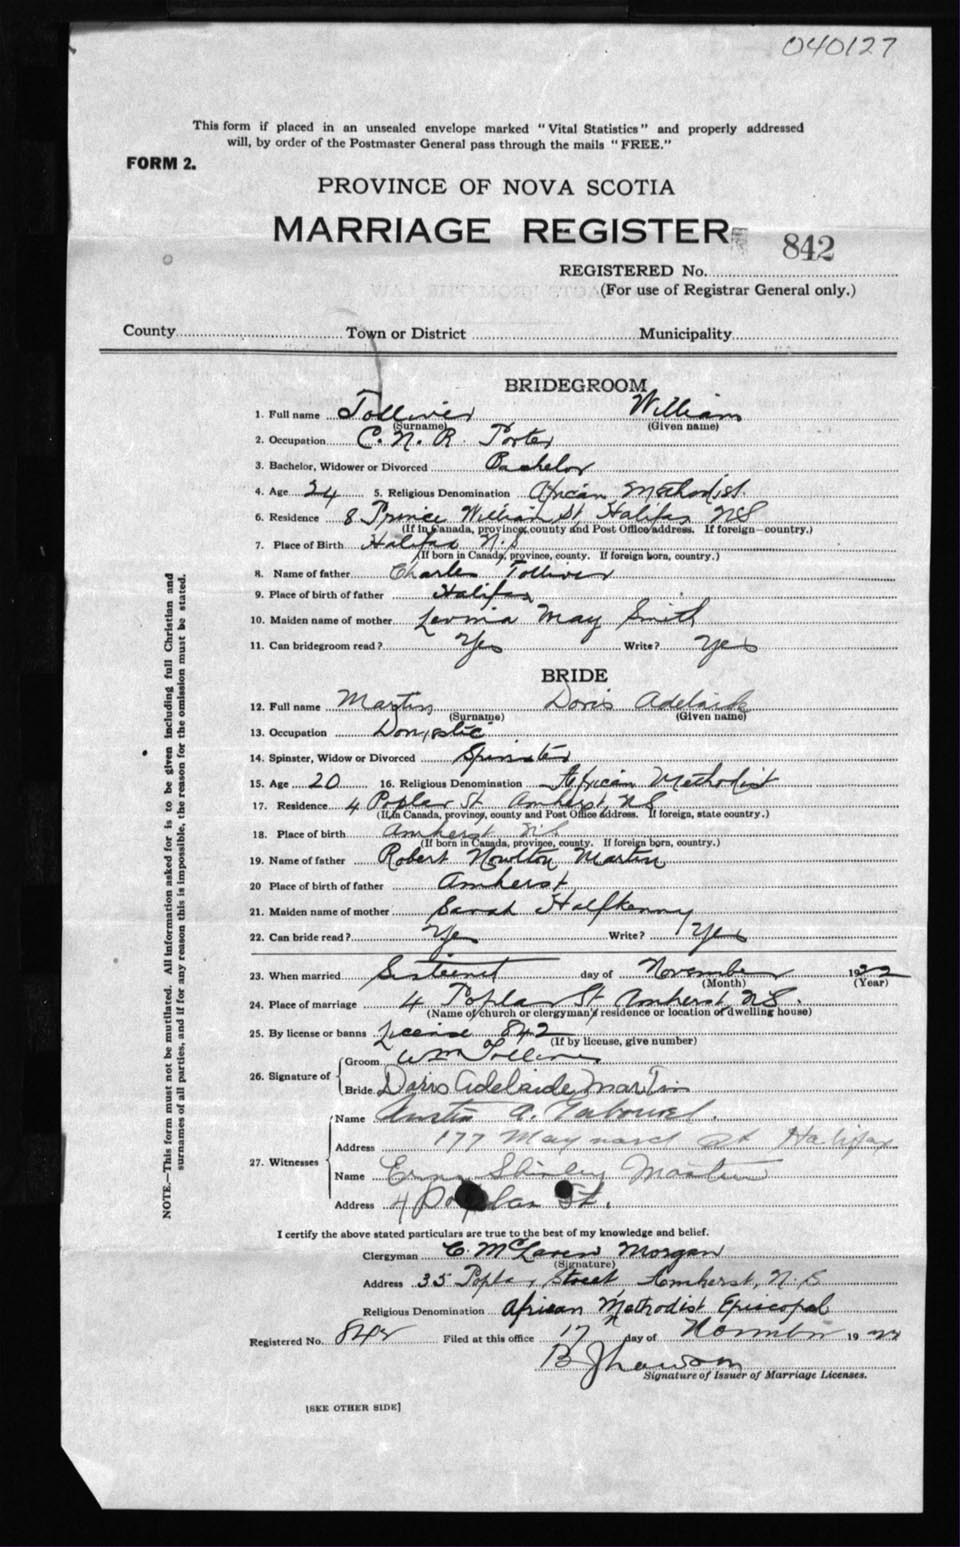 040127
This form if placed in an unsealed envelope marked "Vital Statistics" and properly addressed
will, by order of the Postmaster General pass through the mails "FREE."
FORM 2.
PROVINCE OF NOVA SCOTIA
MARRIAGE REGISTER
842
REGISTERED No.
(For use of Registrar General only.)
County Town or District Municipality
BRIDEGROOM
1. Full name Tolliver William
(Surname) (Given name)
2. Occupation C. N. R. Porter
3. Bachelor, Widower or Divorced Bachelor
4. Age 24 5. Religious Denomination African Methodist.
6. Residence 8 Prince William St Halifax NS
(If in Canada, province, county and Post Office address. If foreign—country.)
7. Place of Birth Halifax N.S
(If born in Canada, province, county. If foreign born, country.)
8. Name of father Charles Tolliver
9. Place of birth of father Halifax
10. Maiden name of mother Lavinia May Smith
11. Can bridegroom read? Yes Write? Yes
BRIDE
12. Full name Martin Doris Adelaide
(Surname) (Given name)
13. Occupation Domestic
14. Spinster, Widow or Divorced Spinster
15. Age 20 16. Religious Denomination African Methodist
17. Residence 4 Poplar St. Amherst, NS
(If in Canada, province, county and Post Office address. If foreign, state country.)
18. Place of birth Amherst NS
(If born in Canada, province, county. If foreign born, country.)
19. Name of father Robert Nowlton Martin
20 Place of birth of father Amherst
21. Maiden name of mother Sarah Halfkenny
22. Can bride read? Yes Write? Yes
23. When married Sixteenth day of November 1922
(Month) (Year)
24. Place of marriage 4 Poplar St Amherst, NS.
(Name of church or clergyman's residence or location of dwelling house)
25. By license or banns License 842
(If by license, give number)
26. Signature of
Groom Wm Tolliver
Bride Doris Adelaide Martin
27. Witnesses
Name Austin A.
Address 177 Maynard St Halifax
Name Erma Shirley Martin
Address 4 Poplar St.
I certify the above stated particulars are true to the best of my knowledge and belief.
Clergyman C. McLaren Morgan
(Signature)
Address 35 Poplar Street Amherst, N. S
Religious Denomination African Methodist Episcopal
Registered No. 842 Filed at this office 17 day of November 1922
Signature of Issuer of Marriage Licenses.
[SEE OTHER SIDE]
NOTE.—This form must not be mutilated. All information asked for is to be given including full Christian and
surnames of all parties, and if for any reason this is impossible, the reason for the omission must be stated.